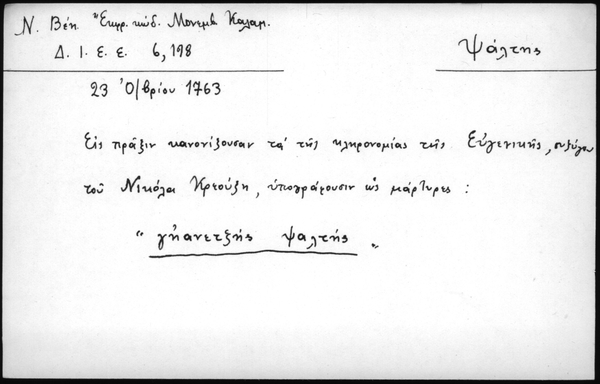 Ν. Βέη "Εκφρ. κώδ. Μονεμβ. Καλαμ.
Δ. Ι. Ε. Ε. 6, 198
Ψάλτης
23 Ὀ/βρίου 1763
Εἰς πρᾶξιν κανονίζουσαν τὰ τῆς κληρονομίας τῆς Εὐγενικῆς, συζύγου
τοῦ Νικόλα Κρεούζη, ὑπογράφουσιν ὡς μάρτυρες :
" γηανετζής ψαλτής "